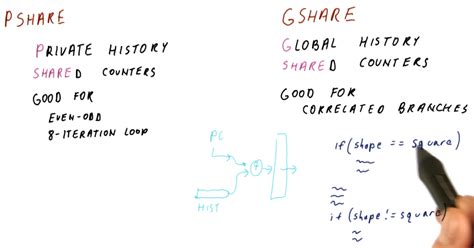 PSHARE
PRIVATE HISTORY
SHARED COUNTERS
GOOD FOR
EVEN-ODD
8-ITERATION LOOP
GSHARE
GLOBAL HISTORY
SHARED COUNTERS
GOOD FOR
CORRELATED BRANCHES
PC
HIST
if(shape == square)
if(shape != square)